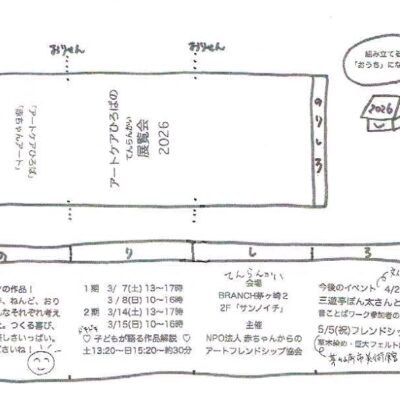 おりせん
おりせん
組み立てる
「おうち」にな
2026
のりしろ
アートケアひろばの
てんらんかい
展覧会
2026
「アートケアひろば」
「赤ちゃんアート」
の
り
し
ろ
の作品！
、ねんど、おり
それぞれ考え
。つくる喜び、
しさいっぱい。
ださいね！
1期 3/ 7(土)13〜17時
3/ 8(日)10〜16時
2期 3/14(土)13〜17時
3/15(日)10〜16時
♡ 子どもが語る作品解説 ♡
土13:20〜日15:20〜約30分
てんらんかい
会場
BRANCH茅ヶ崎2
2F「サンノイチ」
主催
NPO法人 赤ちゃんからの
アートフレンドシップ協会
今後のイベント 4/2
三遊亭ぽん太さんと
音ことばワーク参加者の
5/5(祝)フレンドシッ
草木染め・巨大フェルト
茅ヶ崎市美術館